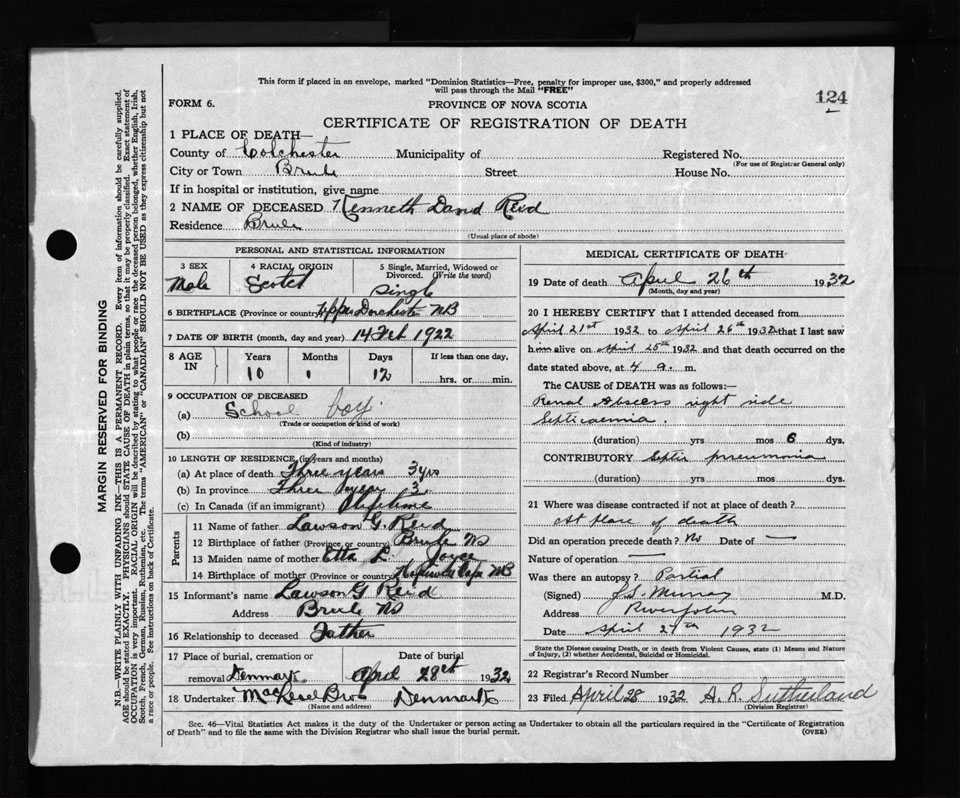 This form if placed in an envelope, marked "Dominion Statistics—Free, penalty for improper use, $300," and properly addressed
will pass through the Mail "FREE"
FORM 6.
PROVINCE OF NOVA SCOTIA
124
CERTIFICATE OF REGISTRATION OF DEATH
1 PLACE OF DEATH—
County of Colchester Municipality of Registered No.
(For use of Registrar General only)
City or Town Brule Street House No.
If in hospital or institution, give name
2 NAME OF DECEASED Kenneth David Reid
Residence Brule
(Usual place of abode)
PERSONAL AND STATISTICAL INFORMATION
3 SEX 4 RACIAL ORIGIN 5 Single, Married, Widowed or Divorced. (Write the word)
Male Scotch Single
6 BIRTHPLACE (Province or country) Upper Dorchester NB
7 DATE OF BIRTH (month, day and year) 14 Feb 1922
8 AGE IN Years Months Days If less than one day,
10 1 12 hrs. or min.
9 OCCUPATION OF DECEASED
(a) School boy
(Trade or occupation or kind of work)
(b)
(Kind of industry)
10 LENGTH OF RESIDENCE (in years and months)
(a) At place of death Three years 3 yrs
(b) In province Three years 3
(c) In Canada (if an immigrant) Lifetime
Parents
11 Name of father Lawson G. Reid
12 Birthplace of father (Province or country) Brule NS
13 Maiden name of mother Etta L Joyce
14 Birthplace of mother (Province or country) Hopewell Cape NB
15 Informant's name Lawson G Reid
Address Brule NS
16 Relationship to deceased Father
17 Place of burial, cremation or removal Denmark Date of burial April 28th 1932
18 Undertaker Bros Denmark
(Name and address)
MEDICAL CERTIFICATE OF DEATH
19 Date of death April 26th 1932
(Month, day and year)
20 I HEREBY CERTIFY that I attended deceased from
April 21st 1932 to April 26th 1932 that I last saw
him alive on April 25th 1932 and that death occurred on the
date stated above, at 4 a. m.
The CAUSE of DEATH was as follows:
Renal Abscess right side
Septicaemia.
(duration) yrs mos 6 dys.
CONTRIBUTORY Septic pneumonia
(duration) yrs mos dys.
21 Where was disease contracted if not at place of death?
At place of death
Did an operation precede death? No Date of —
Nature of operation —
Was there an autopsy? Partial
(Signed) Murray M.D.
Address River John
Date April 27th 1932
State the Disease causing Death, or in death from Violent Causes, state (1) Means and Nature
of Injury, (2) whether Accidental, Suicidal or Homicidal.
22 Registrar's Record Number
23 Filed April 28 1932 A. R. Sutherland
(Division Registrar)
Sec. 46—Vital Statistics Act makes it the duty of the Undertaker or person acting as Undertaker to obtain all the particulars required in the "Certificate of Registration
of Death" and to file the same with the Division Registrar who shall issue the burial permit.
(OVER)
MARGIN RESERVED FOR BINDING
N.B.—WRITE PLAINLY WITH UNFADING INK—THIS IS A PERMANENT RECORD. Every item of information should be carefully supplied.
AGE should be stated EXACTLY. PHYSICIANS should STATE CAUSE OF DEATH in plain terms, so that it may be properly classified. Exact statement of
OCCUPATION is very important. RACIAL ORIGIN will be described by stating to what people or race the deceased person belonged, whether English, Irish,
Scotch, French, German, Russian, Ruthenian, etc. The terms "AMERICAN" or "CANADIAN" SHOULD NOT BE USED as they express citizenship but not
a race or people. See instructions on back of Certificate.